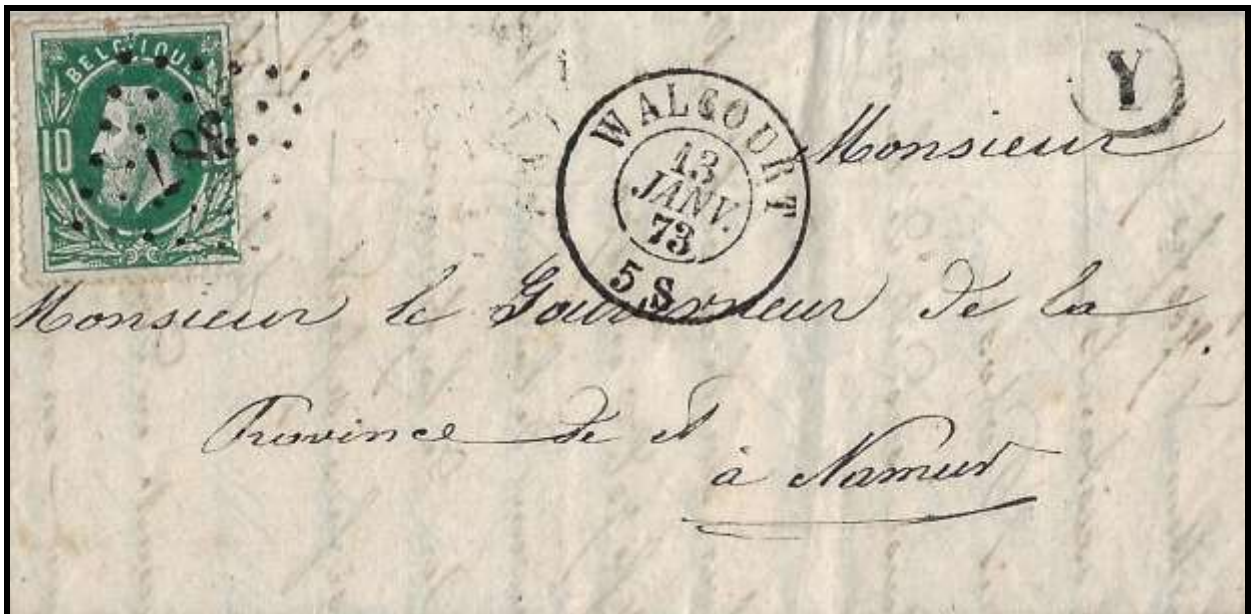 BELGIQUE
10
WALCOURT
13
JANV.
73
5 S
Y
Monsieur
Monsieur le Gouverneur de la
Province de N
à Namur